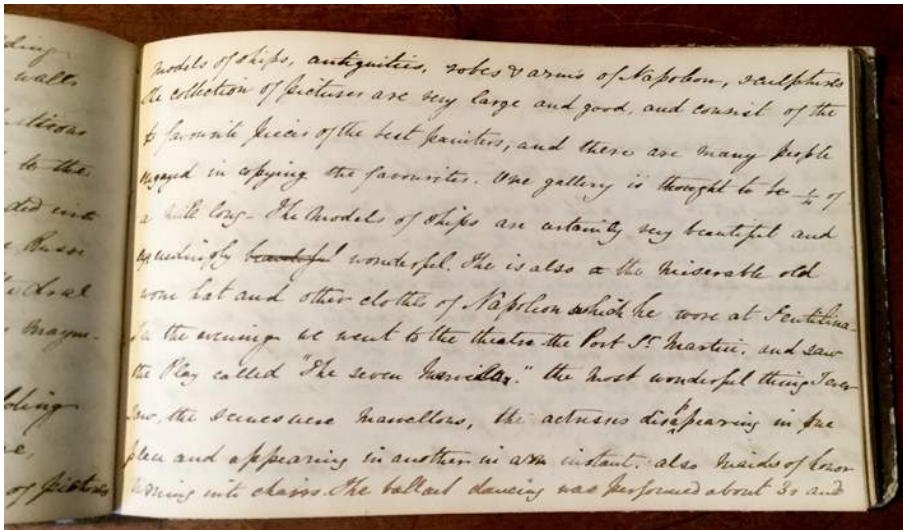 ding
walls
to the
ded into
Russe
hedral
Magni-
of pictures
models of ships, antiquities, robes & arms of Napoleon, sculptures
the collection of pictures are very large and good, and consist of the
favourite pieces of the best painters, and there are many people
engaged in copying the favourites. One gallery is thought to be ¼ of
a mile long - The models of ships are certainly very beautiful and
exceedingly beautiful wonderful. The is also the miserable old
worn hat and other clothes of Napoleon which he wore at
In the evening we went to the theatre the Port St. Martin. and saw
the Play called "The seven." the most wonderful thing I ever
saw, the scenes were marvellous, the actresses disappearing in one
place and appearing in another in an instant. also maids of honor
turning into chairs. The ballad dancing was performed about 30 and